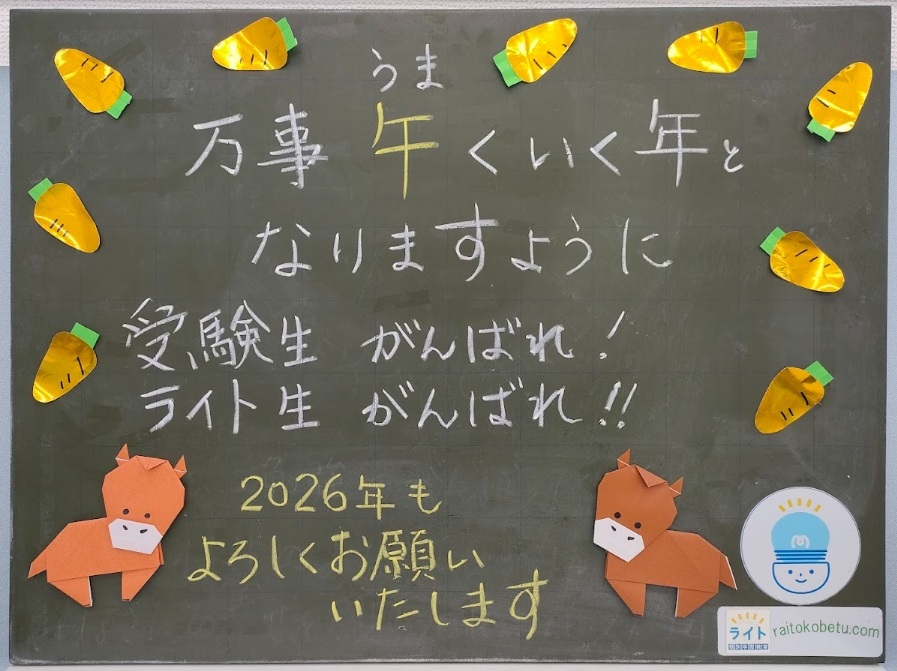 うま
万事午くいく年と
なりますように
受験生 がんばれ!
ライト生 がんばれ!!
2026年も
よろしくお願い
いたします
ライト
raitokobetu.com